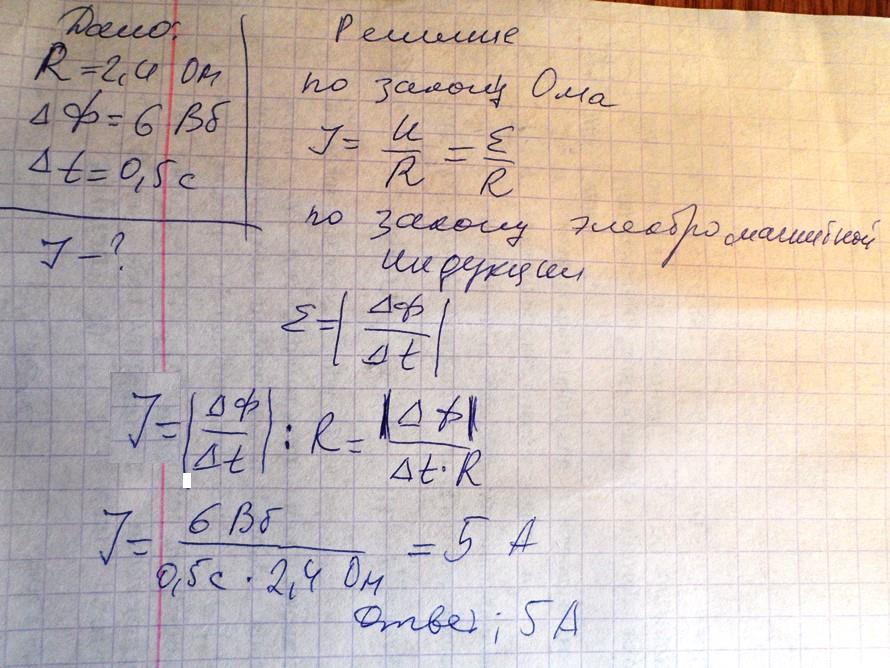 Дано:
R = 2,4 Ом
ΔФ = 6 Вб
Δt = 0,5 с
J - ?
Решение
по закону Ома
J = U/R = ε/R
по закону электромагнитной
индукции
ε = |ΔФ/Δt|
J = |ΔФ/Δt| : R = |ΔФ|/Δt·R
J = 6 Вб/0,5 с · 2,4 Ом = 5 А
Ответ: 5 А